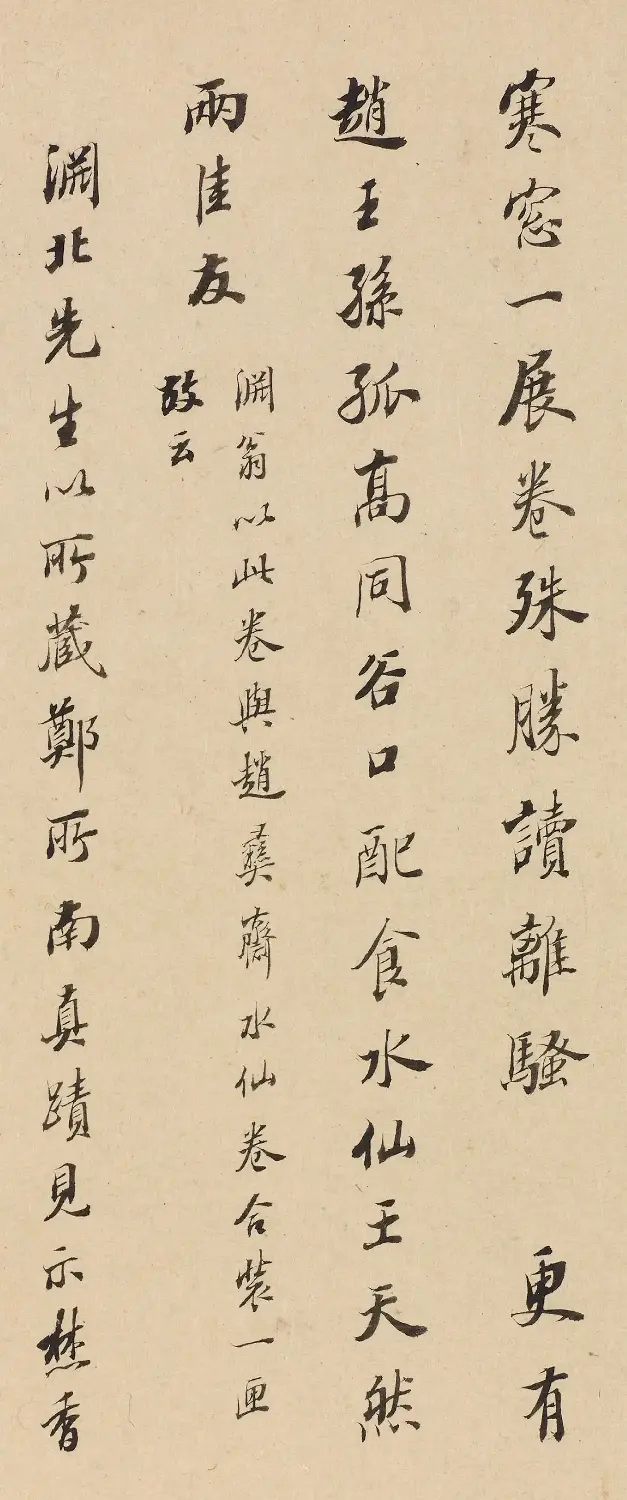 寒窓一展卷殊勝讀離騷　更有
趙王孫孤高同谷口配食水仙王天然
兩佳友
淵翁以此卷與趙彝齋水仙卷合裝一匣
故云
淵北先生以所藏鄭所南真蹟見示焚香